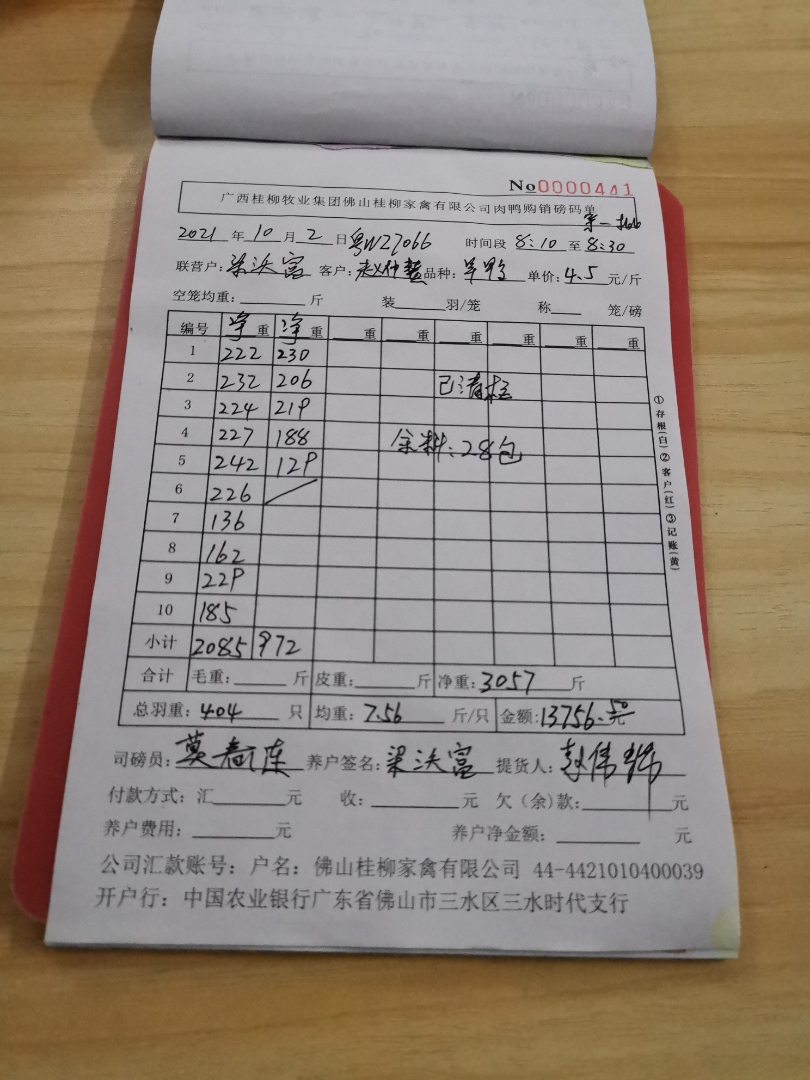 No0000441
广西桂柳牧业集团佛山桂柳家禽有限公司肉鸭购销磅码单
第一
2021 年 10 月 2 日 粤W27066 时间段 8:10 至 8:30
联营户: 梁沃富 客户: 品种: 单价: 4.5 元/斤
空笼均重: 斤 装 羽/笼 称 笼/磅
编号 净重 净重 重 重 重 重 重 重
1 222 230
2 232 206 已清栏
3 224 219
4 227 188 余料:28包
5 242 129
6 226
7 136
8 162
9 229
10 185
小计 2085 972
合计 毛重: 斤 皮重: 斤 净重: 3057 斤
总羽重: 404 只 均重: 7.56 斤/只 金额: 13756.50元
司磅员: 养户签名: 梁沃富 提货人:
付款方式: 汇 元 收: 元 欠(余)款: 元
养户费用: 元 养户净金额: 元
公司汇款账号: 户名: 佛山桂柳家禽有限公司 44-4421010400039
开户行: 中国农业银行广东省佛山市三水区三水时代支行
①存根(白)②客户(红)③记账(黄)